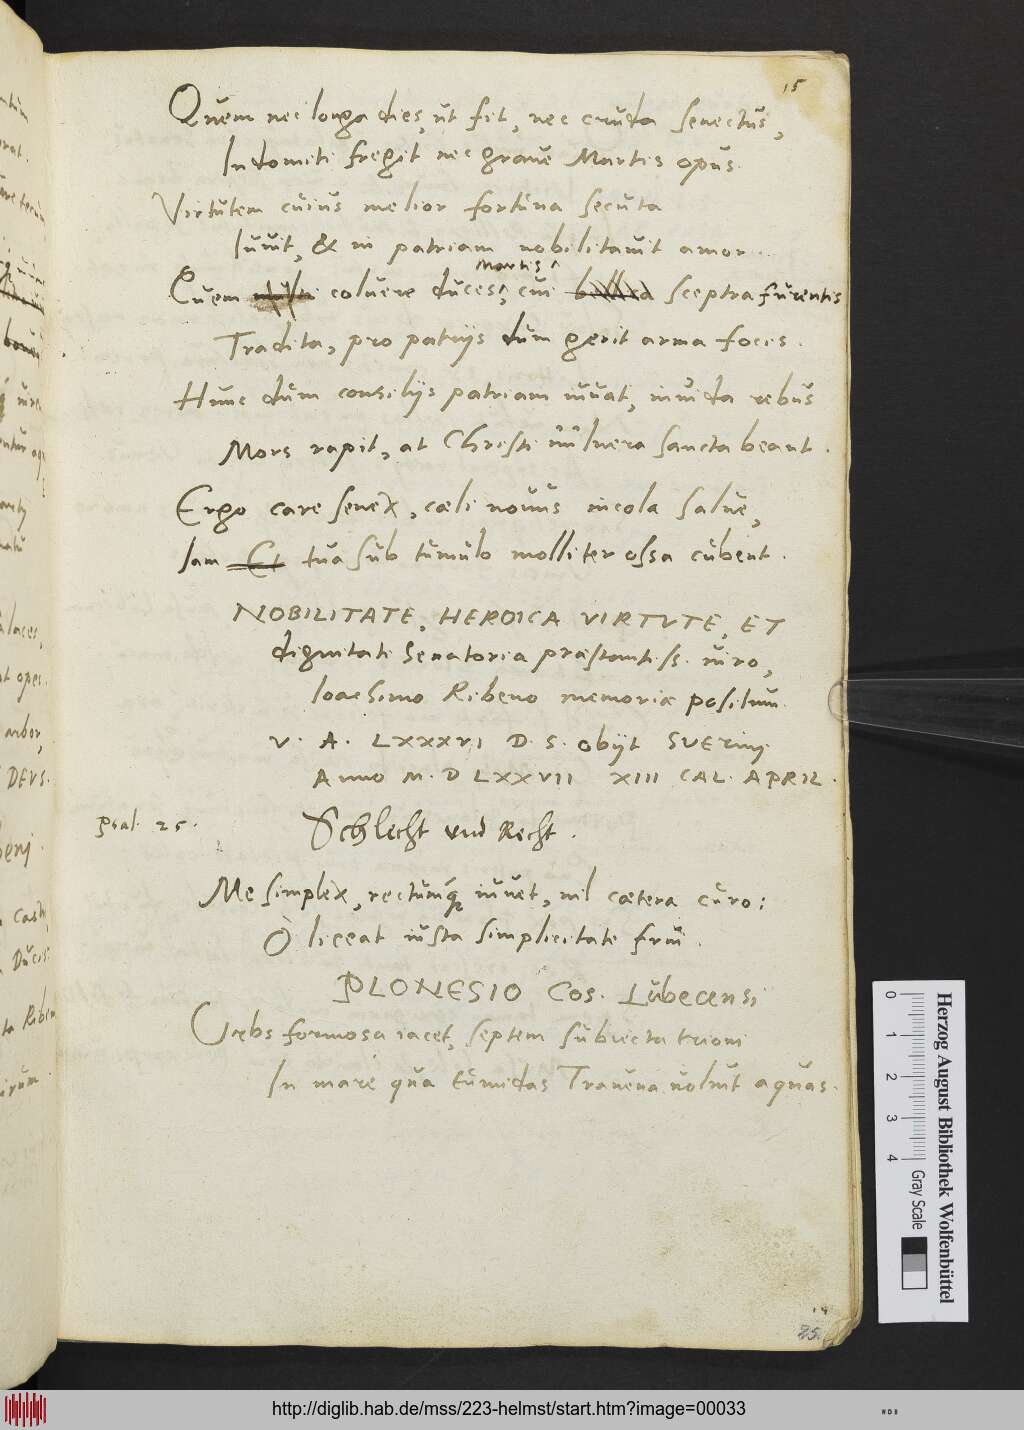 15
Quem nec longa dies, ut fit, nec cruda senectus,
Indomiti fregit nec graue Martis opus.
Virtutem cuius melior fortuna secuta
Iuuit, & in patriam nobilitauit amor.
Martis ^
Quem coluere duces, cui sceptra furentis
Tradita, pro patrijs dum gerit arma focis.
Hunc dum consilijs patriam iuuat, inuida rebus
Mors rapit, at Christi uulnera sancta beant.
Ergo care senex, cæli nouus incola salue,
Iam Et tua sub tumulo molliter ossa cubent.
NOBILITATE, HEROICA VIRTVTE, ET
dignitate Senatoria præstantiss. uiro,
Ioachimo Ribeno memoriæ positum.
V. A. LXXXVI D. S. obijt SVErinj.
Anno M. D LXXVII XIII CAL. APRIL.
psal. 25. Schlecht und Recht.
Me simplex, rectumq; iuuet, nil cætera curo:
O liceat iusta simplicitate frui.
PLONESIO Cos. Lubecensi
Vrbs formosa iacet, septem subiecta trioni
In mare qua tumidas Trauena uoluit aquas.
14
25.
0 1 2 3 4
Gray Scale
Herzog August Bibliothek Wolfenbüttel
http://diglib.hab.de/mss/223-helmst/start.htm?image=00033
WDB